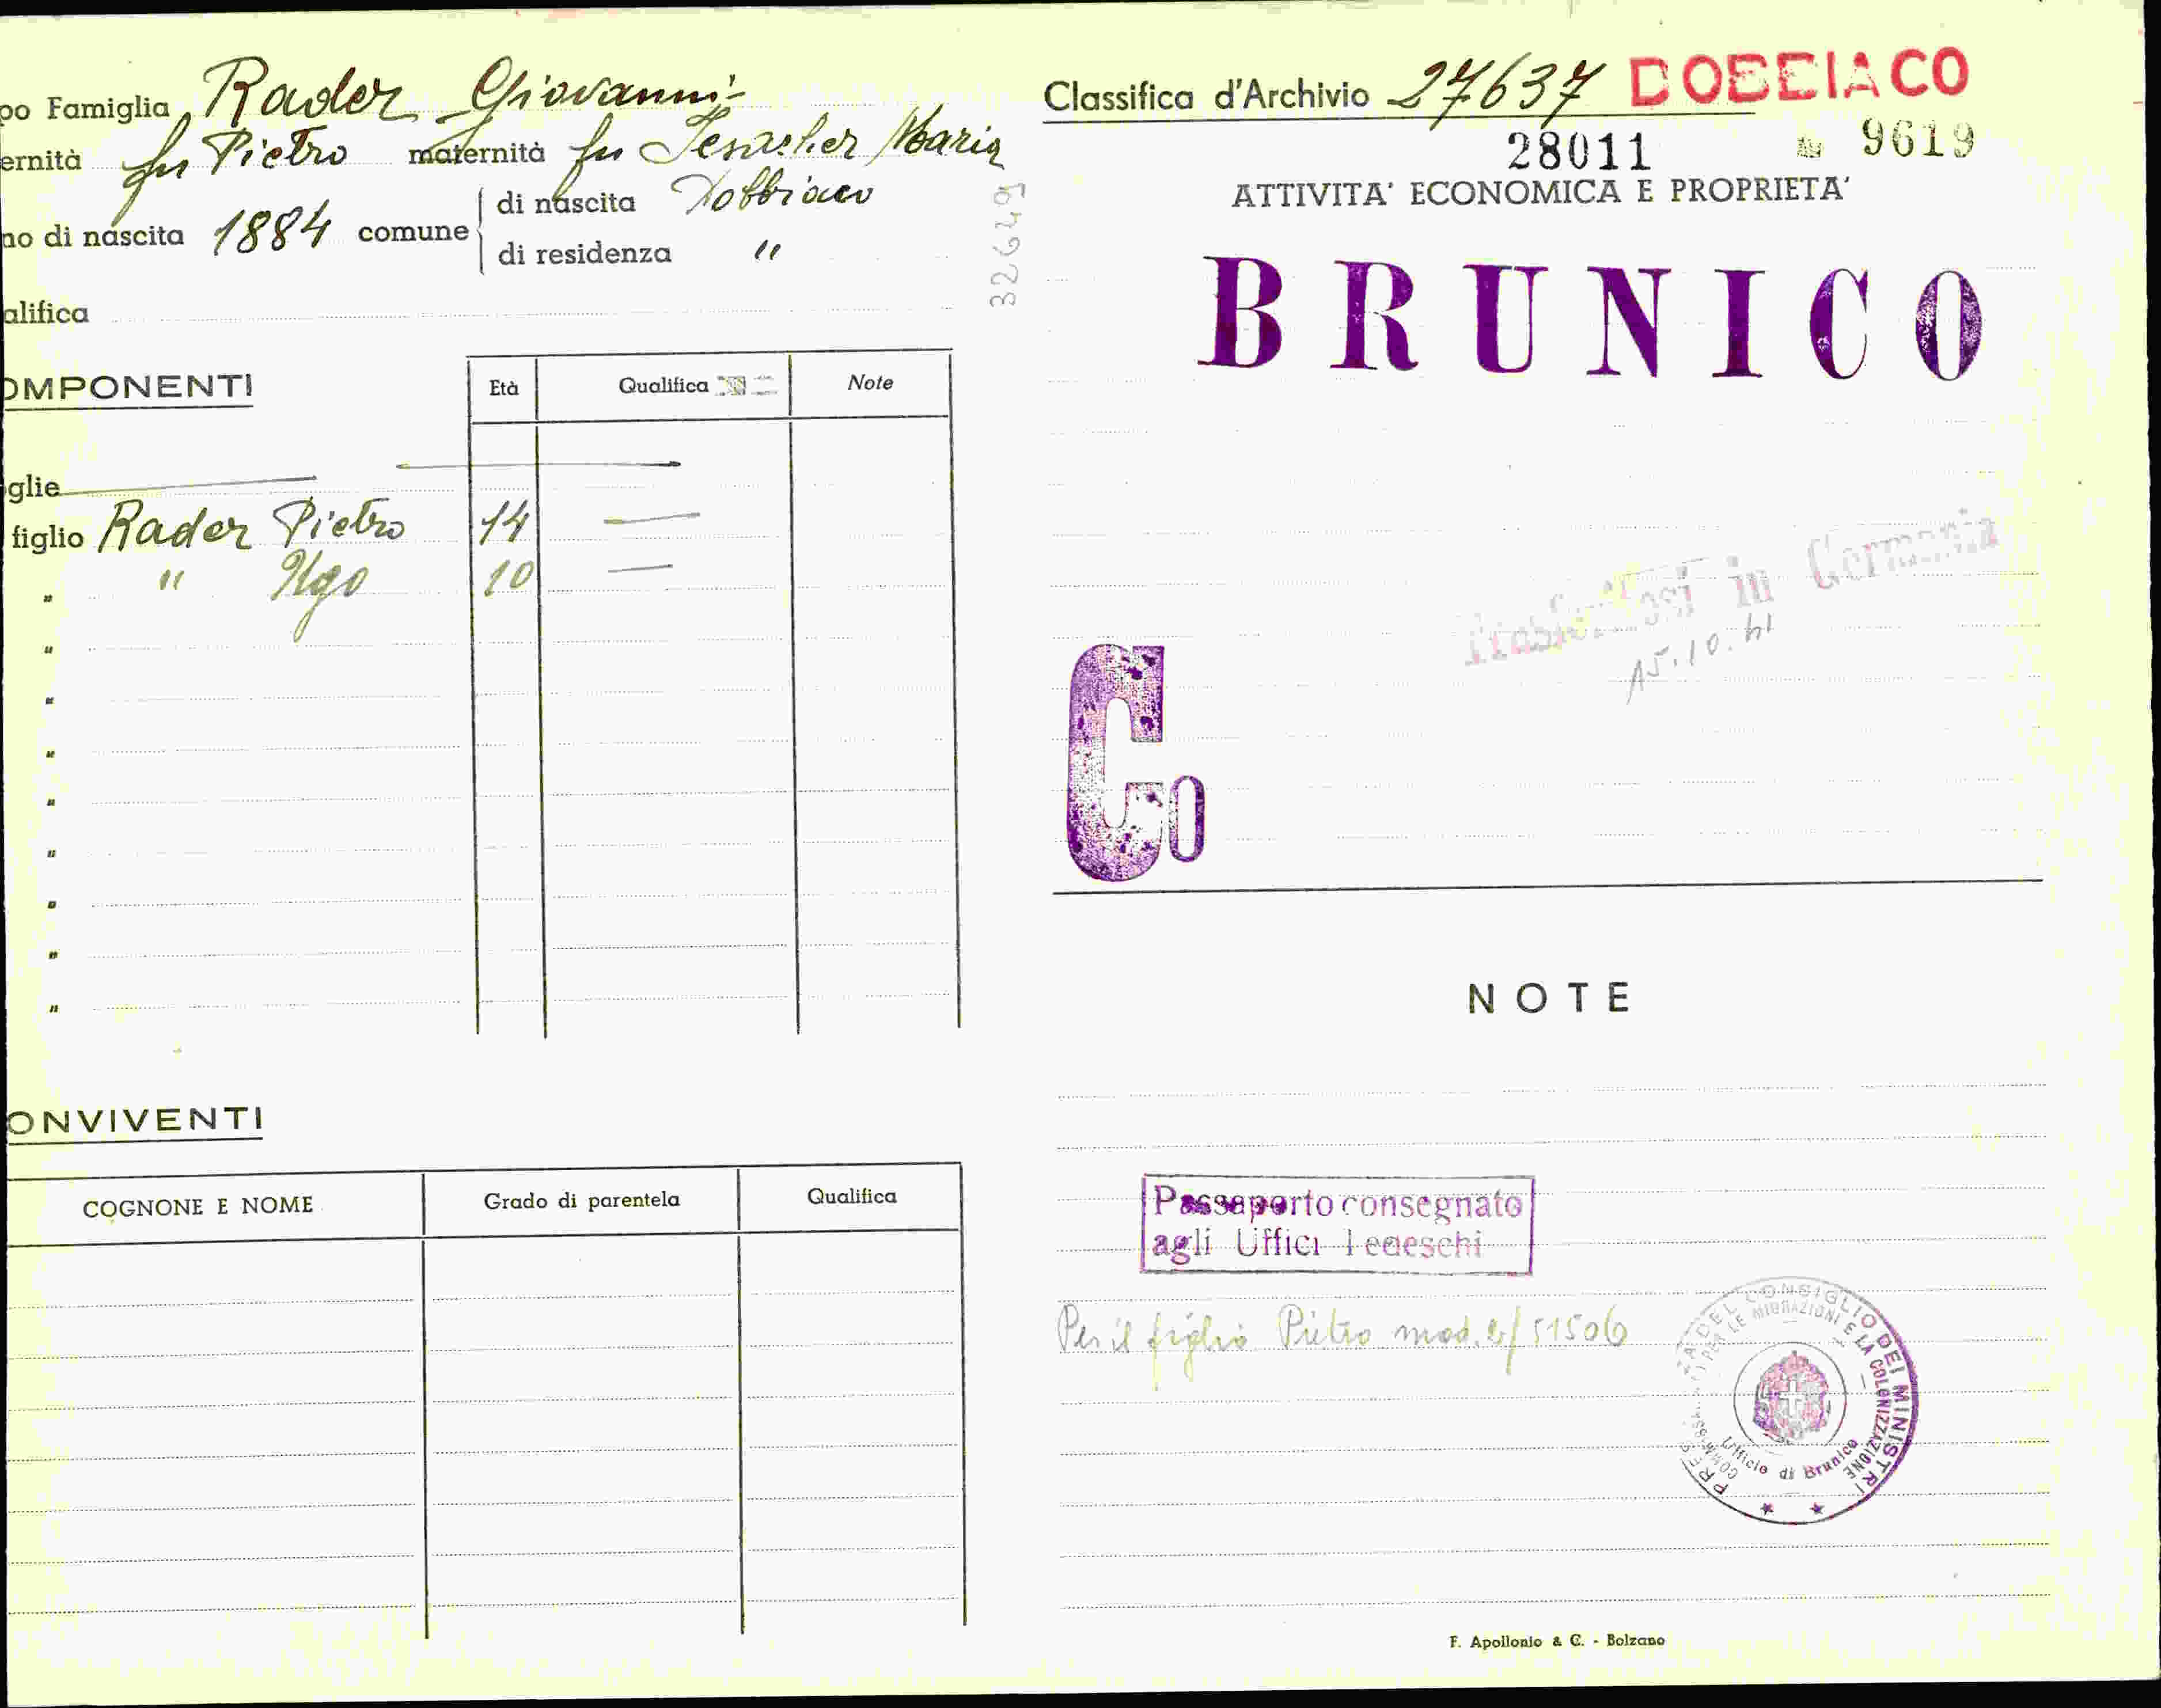 po Famiglia Rader Giovanni
ernità fu Pietro maternità fu Maria
no di nascita 1884 comune di nascita Dobbiaco
di residenza "
alifica
32649
OMPONENTI
Età Qualifica Note
glie
figlio Rader Pietro 14
" " Ugo 10
"
"
"
"
"
"
"
"
ONVIVENTI
COGNONE E NOME Grado di parentela Qualifica
Classifica d'Archivio 27637 DOBBIACO
28011 9619
ATTIVITA' ECONOMICA E PROPRIETA'
BRUNICO
Trasferitosi in Germania
15.10.41
Co
NOTE
Passaporto consegnato
agli Uffici Tedeschi
Per il figlio Pietro mod. 51506
PRES. ZA DEL CONSIGLIO DEI MINISTRI
COMMISSA PER LE MIGRAZIONI E LA COLONIZZAZIONE
Ufficio di Brunico
F. Apollonio & C. - Bolzano